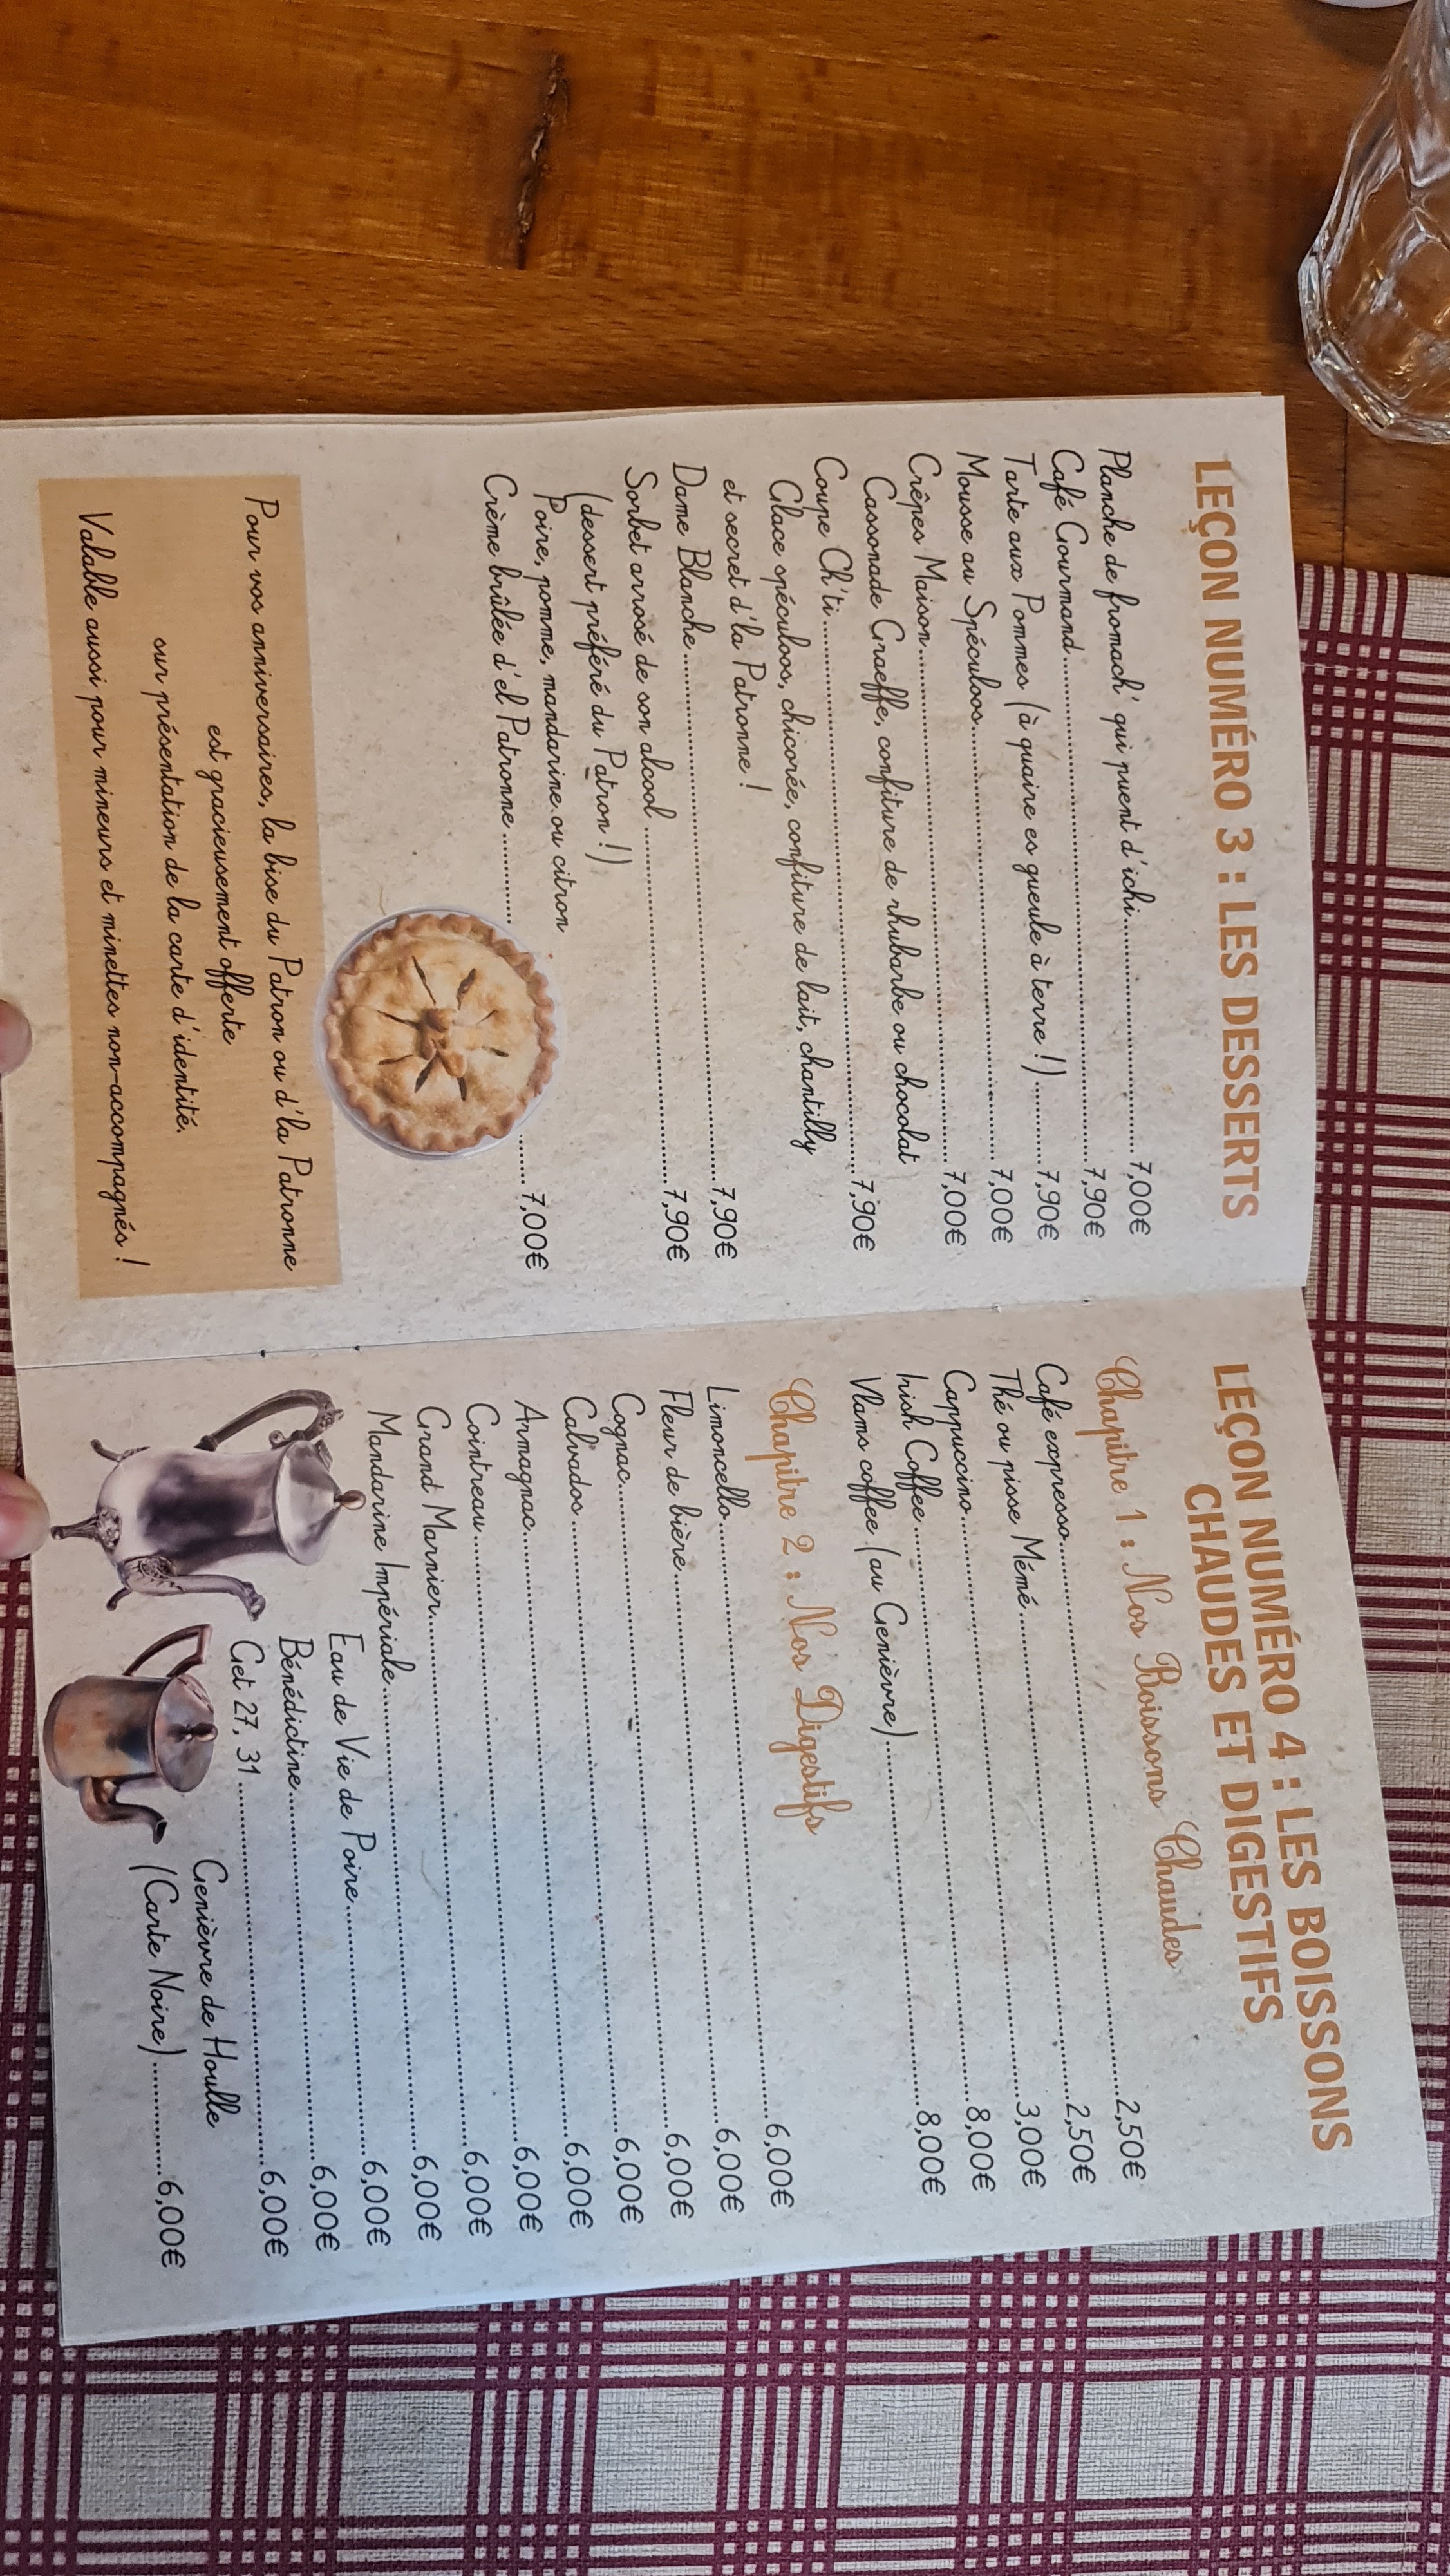 LEÇON NUMÉRO 3 : LES DESSERTS
Planche de fromach' qui puent d'ichi 7,00€
Café Gourmand 7,90€
Tarte aux Pommes (à quaire es gueule à terre !) 7,90€
Mousse au Spéculoos 7,00€
Crêpes Maison 7,00€
Cassonade Graeffe, confiture de rhubarbe ou chocolat
Coupe Ch'ti 7,90€
Glace spéculoos, chicorée, confiture de lait, chantilly
et secret d'la Patronne !
Dame Blanche 7,90€
Sorbet arrosé de son alcool 7,90€
(dessert préféré du Patron !)
Poire, pomme, mandarine ou citron
Crème brûlée d'el Patronne 7,00€
Pour vos anniversaires, la bise du Patron ou d'la Patronne
est gracieusement offerte
sur présentation de la carte d'identité.
Valable aussi pour mineurs et minettes non-accompagnés !
LEÇON NUMÉRO 4 : LES BOISSONS
CHAUDES ET DIGESTIFS
Chapitre 1 : Nos Boissons Chaudes
Café expresso 2,50€
Thé ou pisse Mémé 2,50€
Cappuccino 3,00€
Irish Coffee 8,00€
Vlams coffee (au Genièvre) 8,00€
Chapitre 2 : Nos Digestifs
Limoncello 6,00€
Fleur de bière 6,00€
Cognac 6,00€
Calvados 6,00€
Armagnac 6,00€
Cointreau 6,00€
Grand Marnier 6,00€
Mandarine Impériale 6,00€
Eau de Vie de Poire 6,00€
Bénédictine 6,00€
Get 27, 31 6,00€
Genièvre de Houlle
(Carte Noire) 6,00€